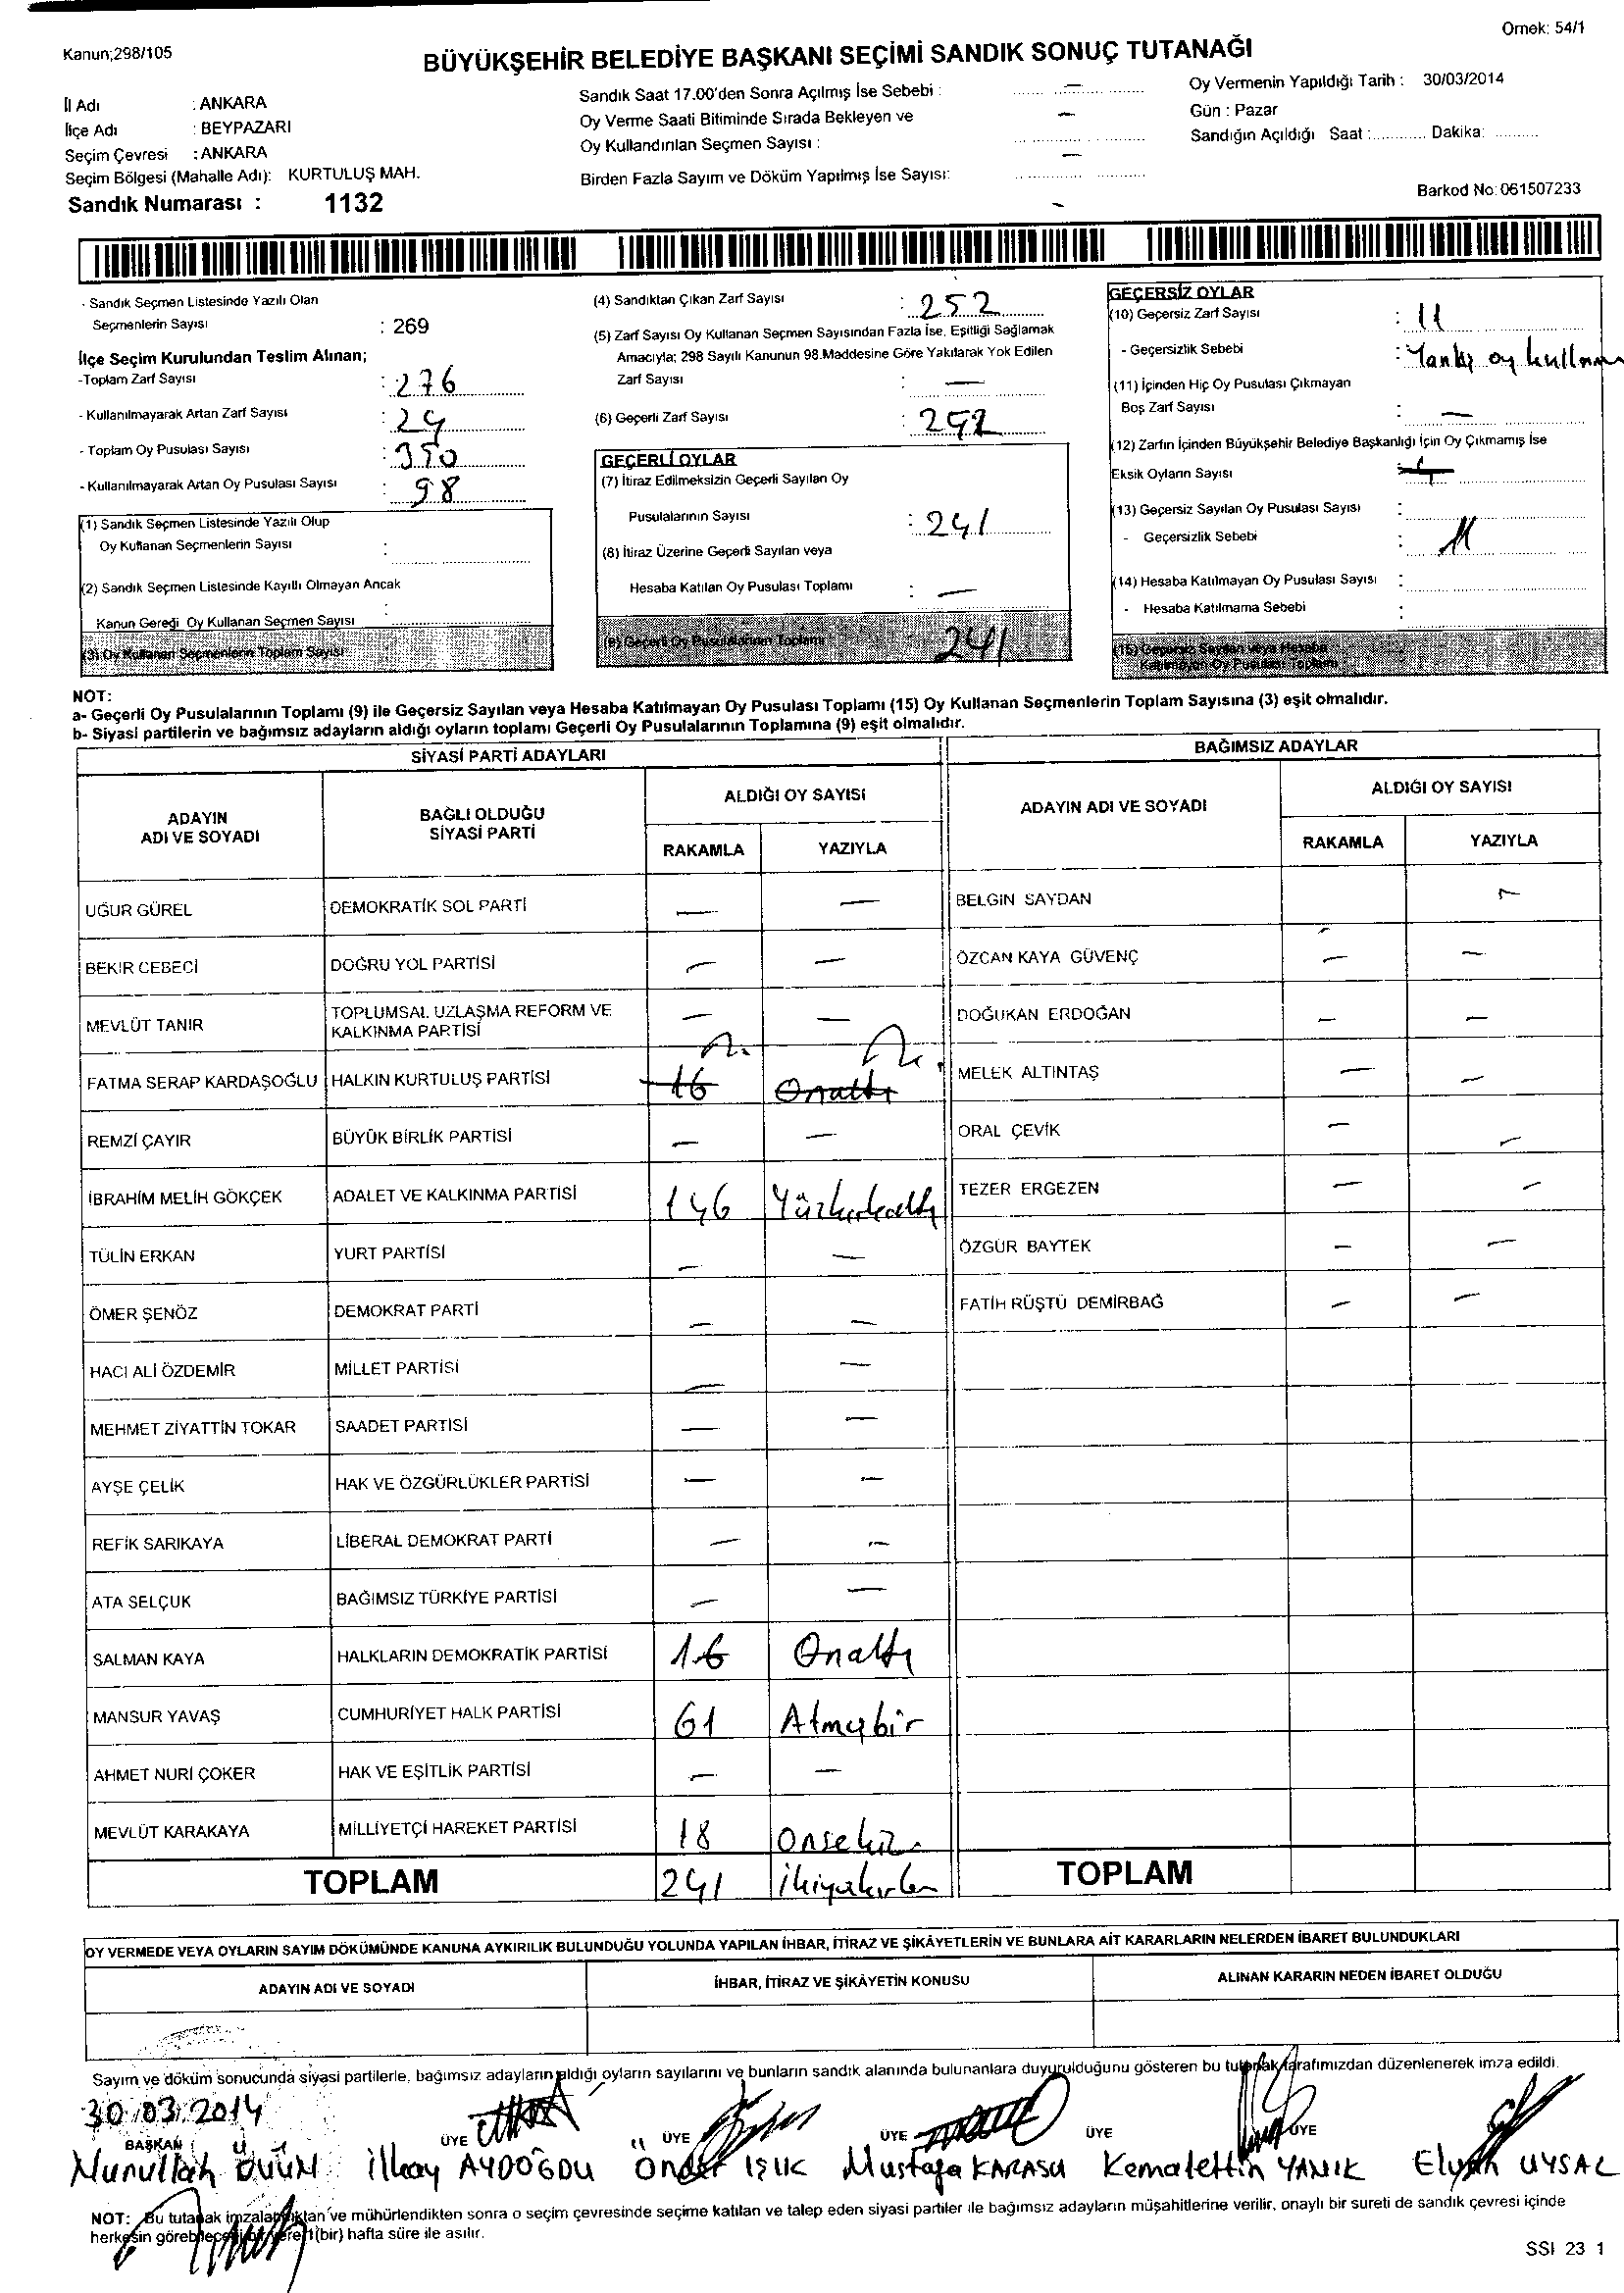 Örnek: 54/1
Kanun;298/105
BÜYÜKŞEHİR BELEDİYE BAŞKANI SEÇİMİ SANDIK SONUÇ TUTANAĞI
İl Adı : ANKARA
İlçe Adı : BEYPAZARI
Seçim Çevresi : ANKARA
Seçim Bölgesi (Mahalle Adı): KURTULUŞ MAH.
Sandık Numarası : 1132
Sandık Saat 17.00'den Sonra Açılmış İse Sebebi : —
Oy Verme Saati Bitiminde Sırada Bekleyen ve —
Oy Kullandırılan Seçmen Sayısı :
Birden Fazla Sayım ve Döküm Yapılmış İse Sayısı: —
Oy Vermenin Yapıldığı Tarih : 30/03/2014
Gün : Pazar
Sandığın Açıldığı Saat :............ Dakika: ..........
Barkod No: 061507233
- Sandık Seçmen Listesinde Yazılı Olan
Seçmenlerin Sayısı : 269
İlçe Seçim Kurulundan Teslim Alınan;
-Toplam Zarf Sayısı : 276
- Kullanılmayarak Artan Zarf Sayısı : 24
- Toplam Oy Pusulası Sayısı : 350
- Kullanılmayarak Artan Oy Pusulası Sayısı : 98
(1) Sandık Seçmen Listesinde Yazılı Olup
Oy Kullanan Seçmenlerin Sayısı :
(2) Sandık Seçmen Listesinde Kayıtlı Olmayan Ancak
Kanun Gereği Oy Kullanan Seçmen Sayısı :
(3) Oy Kullanan Seçmenlerin Toplam Sayısı
(4) Sandıktan Çıkan Zarf Sayısı : 252
(5) Zarf Sayısı Oy Kullanan Seçmen Sayısından Fazla İse, Eşitliği Sağlamak
Amacıyla; 298 Sayılı Kanunun 98.Maddesine Göre Yakılarak Yok Edilen
Zarf Sayısı : —
(6) Geçerli Zarf Sayısı : 252
GEÇERLİ OYLAR
(7) İtiraz Edilmeksizin Geçerli Sayılan Oy
Pusulalarının Sayısı : 241
(8) İtiraz Üzerine Geçerli Sayılan veya
Hesaba Katılan Oy Pusulası Toplamı : —
(9) Geçerli Oy Pusulalarının Toplamı : 241
GEÇERSİZ OYLAR
(10) Geçersiz Zarf Sayısı : 11
- Geçersizlik Sebebi : Yanlış oy
(11) İçinden Hiç Oy Pusulası Çıkmayan
Boş Zarf Sayısı : —
(12) Zarfın İçinden Büyükşehir Belediye Başkanlığı İçin Oy Çıkmamış İse
Eksik Oyların Sayısı :
(13) Geçersiz Sayılan Oy Pusulası Sayısı :
- Geçersizlik Sebebi : 11
(14) Hesaba Katılmayan Oy Pusulası Sayısı :
- Hesaba Katılmama Sebebi :
(15) Geçersiz Sayılan veya Hesaba
Katılmayan Oy Pusulası Toplamı :
NOT:
a- Geçerli Oy Pusulalarının Toplamı (9) ile Geçersiz Sayılan veya Hesaba Katılmayan Oy Pusulası Toplamı (15) Oy Kullanan Seçmenlerin Toplam Sayısına (3) eşit olmalıdır.
b- Siyasi partilerin ve bağımsız adayların aldığı oyların toplamı Geçerli Oy Pusulalarının Toplamına (9) eşit olmalıdır.
SİYASİ PARTİ ADAYLARI
ADAYIN ADI VE SOYADI
BAĞLI OLDUĞU SİYASİ PARTİ
ALDIĞI OY SAYISI
RAKAMLA YAZIYLA
UĞUR GÜREL DEMOKRATİK SOL PARTİ — —
BEKİR CEBECİ DOĞRU YOL PARTİSİ — —
MEVLÜT TANIR TOPLUMSAL UZLAŞMA REFORM VE KALKINMA PARTİSİ — —
FATMA SERAP KARDAŞOĞLU HALKIN KURTULUŞ PARTİSİ 16 Onaltı
REMZİ ÇAYIR BÜYÜK BİRLİK PARTİSİ — —
İBRAHİM MELİH GÖKÇEK ADALET VE KALKINMA PARTİSİ 146 Yüzkırkaltı
TÜLİN ERKAN YURT PARTİSİ — —
ÖMER ŞENÖZ DEMOKRAT PARTİ — —
HACI ALİ ÖZDEMİR MİLLET PARTİSİ — —
MEHMET ZİYATTİN TOKAR SAADET PARTİSİ — —
AYŞE ÇELİK HAK VE ÖZGÜRLÜKLER PARTİSİ — —
REFİK SARIKAYA LİBERAL DEMOKRAT PARTİ — —
ATA SELÇUK BAĞIMSIZ TÜRKİYE PARTİSİ — —
SALMAN KAYA HALKLARIN DEMOKRATİK PARTİSİ 16 Onaltı
MANSUR YAVAŞ CUMHURİYET HALK PARTİSİ 61 Atmışbir
AHMET NURİ ÇOKER HAK VE EŞİTLİK PARTİSİ — —
MEVLÜT KARAKAYA MİLLİYETÇİ HAREKET PARTİSİ 18 Onsekiz
TOPLAM 241
BAĞIMSIZ ADAYLAR
ADAYIN ADI VE SOYADI
ALDIĞI OY SAYISI
RAKAMLA YAZIYLA
BELGİN SAYDAN — —
ÖZCAN KAYA GÜVENÇ — —
DOĞUKAN ERDOĞAN — —
MELEK ALTINTAŞ — —
ORAL ÇEVİK — —
TEZER ERGEZEN — —
ÖZGÜR BAYTEK — —
FATİH RÜŞTÜ DEMİRBAĞ — —
TOPLAM
OY VERMEDE VEYA OYLARIN SAYIM DÖKÜMÜNDE KANUNA AYKIRILIK BULUNDUĞU YOLUNDA YAPILAN İHBAR, İTİRAZ VE ŞİKÂYETLERİN VE BUNLARA AİT KARARLARIN NELERDEN İBARET BULUNDUKLARI
ADAYIN ADI VE SOYADI İHBAR, İTİRAZ VE ŞİKÂYETİN KONUSU ALINAN KARARIN NEDEN İBARET OLDUĞU
Sayım ve döküm sonucunda siyasi partilerle, bağımsız adayların aldığı oyların sayılarını ve bunların sandık alanında bulunanlara duyurulduğunu gösteren bu tutanak tarafımızdan düzenlenerek imza edildi.
30.03.2014
BAŞKAN ÜYE ÜYE ÜYE ÜYE ÜYE
Nurullah İlkay AYDOĞDU Önder IŞIK Mustafa KARASU Kemalettin YANIK UYSAL
NOT: Bu tutanak imzalandıktan ve mühürlendikten sonra o seçim çevresinde seçime katılan ve talep eden siyasi partiler ile bağımsız adayların müşahitlerine verilir, onaylı bir sureti de sandık çevresi içinde
herkesin görebileceği bir yere 1(bir) hafta süre ile asılır.
SSI 23 1